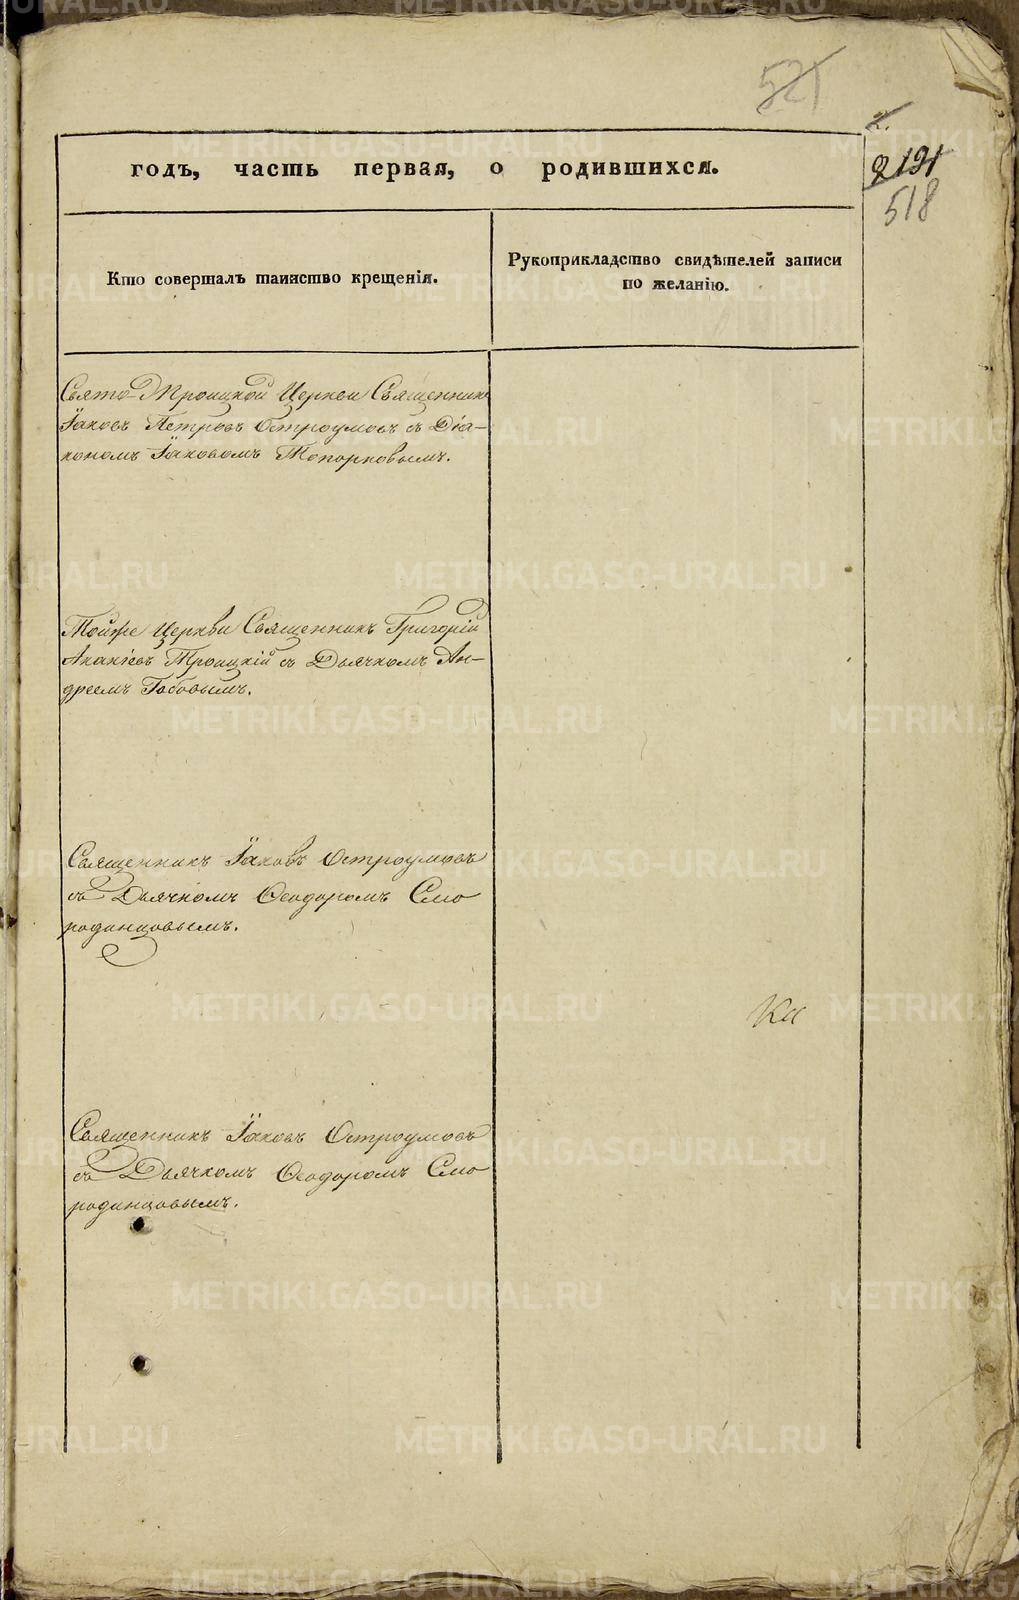 521
2191
518
годъ, часть первая, о родившихся.
Кто совершалъ таинство крещенія.
Рукоприкладство свидѣтелей записи
по желанію.
Свято-Троицкой Церкви Священникъ
Іаковъ Петровъ Остроумовъ съ Діа-
кономъ Іаковомъ Топорковымъ.
Тойже Церкви Священникъ Григорій
Ананіевъ Троицкій съ Дьячкомъ Ан-
дреемъ
Священникъ Іаковъ Остроумовъ
съ Дьячкомъ Ѳеодоромъ Смо
родинцовымъ.
Священникъ Іаковъ Остроумовъ
съ Дьячкомъ Ѳеодоромъ Смо
родинцовымъ.
METRIKI.GASO-URAL.RU